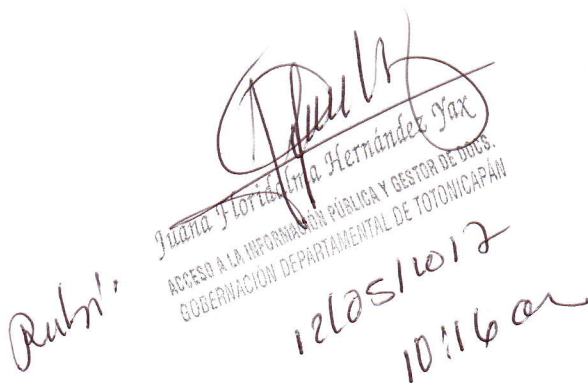 Juana Floridalma Hernández Yax
ACCESO A LA INFORMACIÓN PÚBLICA Y GESTOR DE DOCS.
GOBERNACIÓN DEPARTAMENTAL DE TOTONICAPÁN
12/05/2017
10:16 am